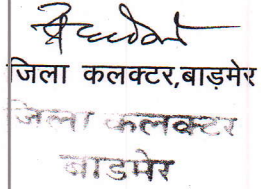 जिला कलक्टर,बाड़मेर
जिला कलक्टर
बाडमेर